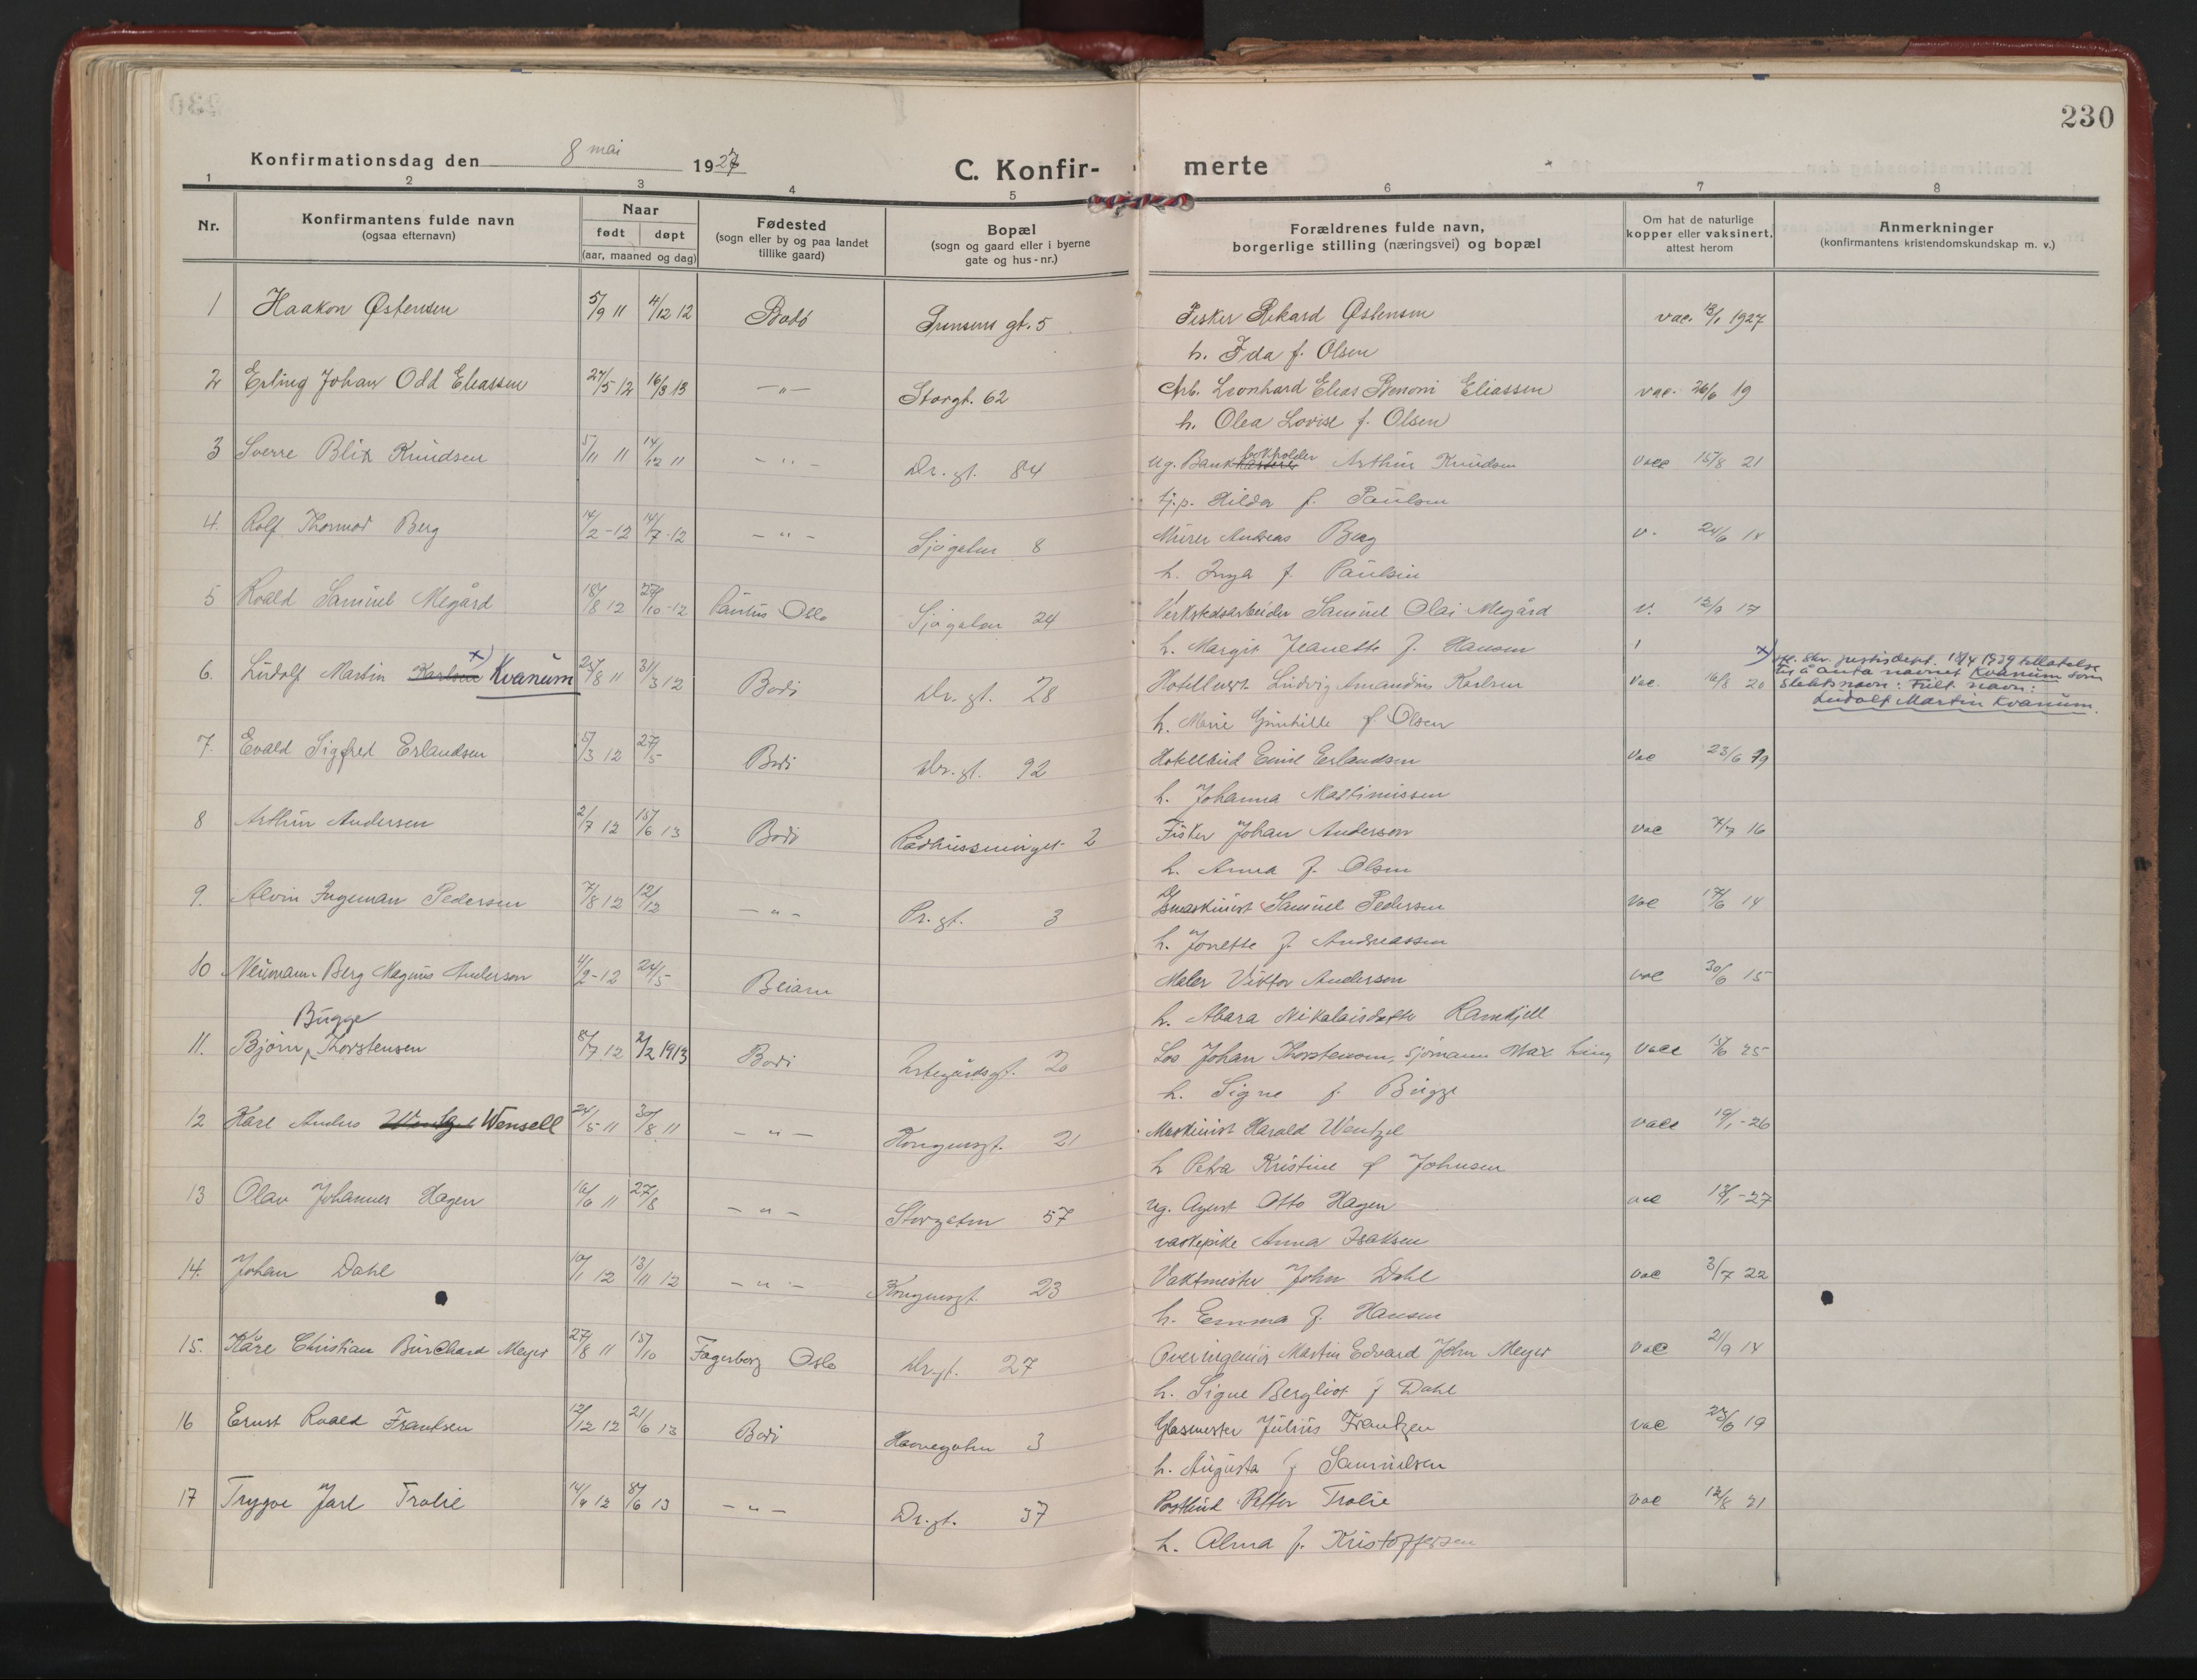 230
Konfirmationsdag den 8 mai 1927
C. Konfir- merte
1 2 3 4 5 6 7 8
Nr.
Konfirmantens fulde navn
(ogsaa efternavn)
Naar
født døpt
(aar, maaned og dag)
Fødested
(sogn eller by og paa landet
tillike gaard)
Bopæl
(sogn og gaard eller i byerne
gate og hus-nr.)
Forældrenes fulde navn,
borgerlige stilling (næringsvei) og bopæl
Om hat de naturlige
kopper eller vaksinert,
attest herom
Anmerkninger
(konfirmantens kristendomskundskap m. v.)
1 Haakon Østensen 5/9 11 4/12 12 Bodø gt. 5 Fisker Rikard Østensen vac. 13/1 1927
h. Ida f. Olsen
2 Erling Johan Odd Eliassen 27/5 12 16/3 13 —"— Storgt. 62 Arb. Leonhard Elias Benoni Eliassen vac. 26/6 19
h. Olea Lovise f. Olsen
3 Sverre Blix Knudsen 5/11 11 14/12 11 —"— Dr. gt. 84 ug. Bankkasserer bokholder Arthur Knudsen vacc 15/8 21
tj.p. Hilda f. Paulsen
4. Rolf Thormod Berg 14/2-12 14/7-12 —"— Sjøgaten 8 Murer Andreas Berg v. 24/6 18
h. Inga f. Paulsen
5 Roald Samuel Megård 18/8 12 27/10-12 Paulus Oslo Sjøgaten 24 Verkstedsarbeider Samuel Olai Megård v. 12/9 17
h. Margit Jeanette f. Hansen
6. Ludolf Martin Karlsen x) Kvanum 25/8 11 31/3 12 Bodø Dr. gt. 28 Ludvig Amandus Karlsen vac. 16/8 20
x) skr. justisdept. 1939 tillatelse
til å anta navnet Kvanum som
slektsnavn: Fullt navn:
Ludolf Martin Kvanum.
h. Marie Gunhilde f. Olsen
7. Evald Sigfred Erlandsen 5/3 12 27/5 Bodø Dr. gt. 92 Hotellbud Emil Erlandsen vac 23/6 19
h. Johanna Martinussen
8 Arthur Andersen 2/7 12 15/6 13 Bodø 2 Fisker Johan Anderson vac 7/7 16
h. Anna f. Olsen
9. Alvin Ingeman Pedersen 7/8 12 12/12 —"— Pr. gt. 3 Samuel Pedersen vac 17/6 14
h. Jonette f. Andreassen
10 Neumann Berg Magnus Anderson 4/2-12 24/5 Beiarn Maler Viktor Anderson vac 30/6 15
h. Abara Nikolaisdatter Ramkjell
11. Bjørn Bugge Thorstensen 8/7 12 2/2 1913 Bodø 20 Los Johan Thorstensen, sjømann Max vacc 15/6 25
h. Signe f. Bugge
12 Kåre Anders Wentzel Wensell 24/5 11 30/8 11 —"— Kongensgt. 21 Maskinist Harald Wentzel vacc 19/1-26
h Petra Kristine f Johnsen
13 Olav Johannes Hagen 16/6 11 27/8 —"— Storgaten 57 ug. Agent Otto Hagen vac 13/1-27
vaskepike Anna Isaksen
14. Johan Dahl 10/1 12 13/11 12 —"— Kongensgt. 23 Vaktmester John Dahl vac 3/7 22
h. Emma f. Hansen
15. Kåre Christian Burchard Meyer 27/8 11 15/10 Fagerborg Oslo Dr. gt. 27 Overingeniør Martin Edvard John Meyer vac 21/9 14
h. Signe Bergliot f Dahl
16 Ernst Roald Frantsen 12/12 12 21/6 13 Bodø Havnegaten 3 Glasmester Julius Frantzen vac 23/6 19
h. Augusta f Samuelsen
17 Trygve Jarl Trolie 14/9 12 8/6 13 —"— Dr. gt. 37 Postbud Petter Trolie vac 12/8 21
h. Alma f. Kristoffersen